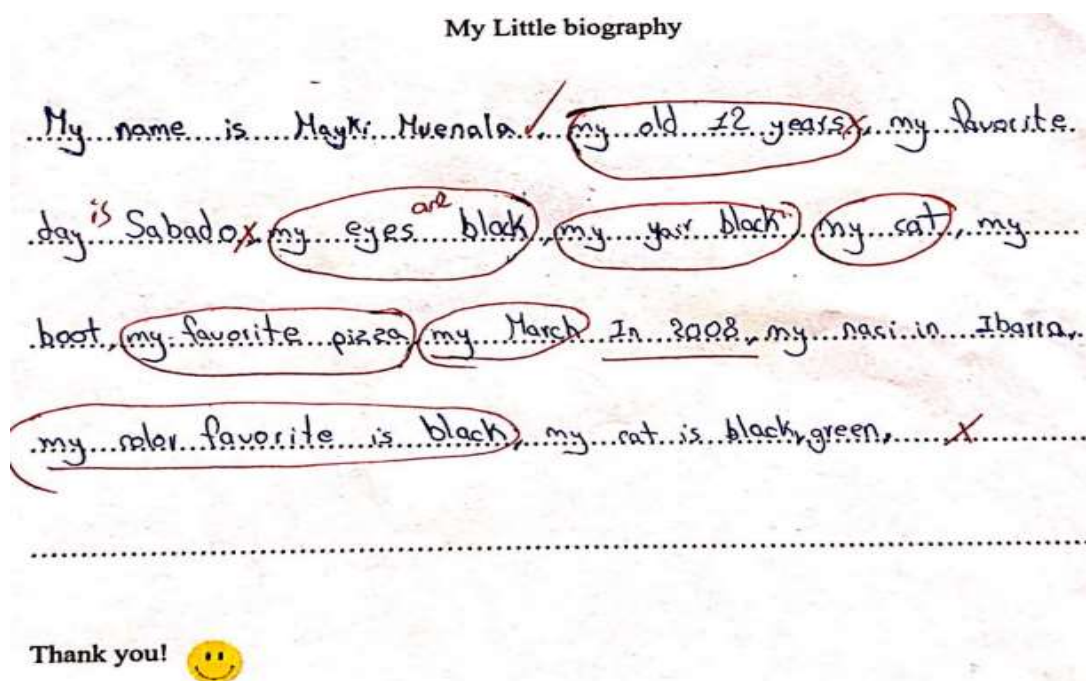 My Little biography
My name is Mayki Muenala, my old 12 years, my favorite
day is Sabado, my eyes are black, my yair black, my cat, my
boot, my favorite pizza, my March In 2008, my naci in Ibarra,
my color favorite is black, my cat is black, green,
Thank you!